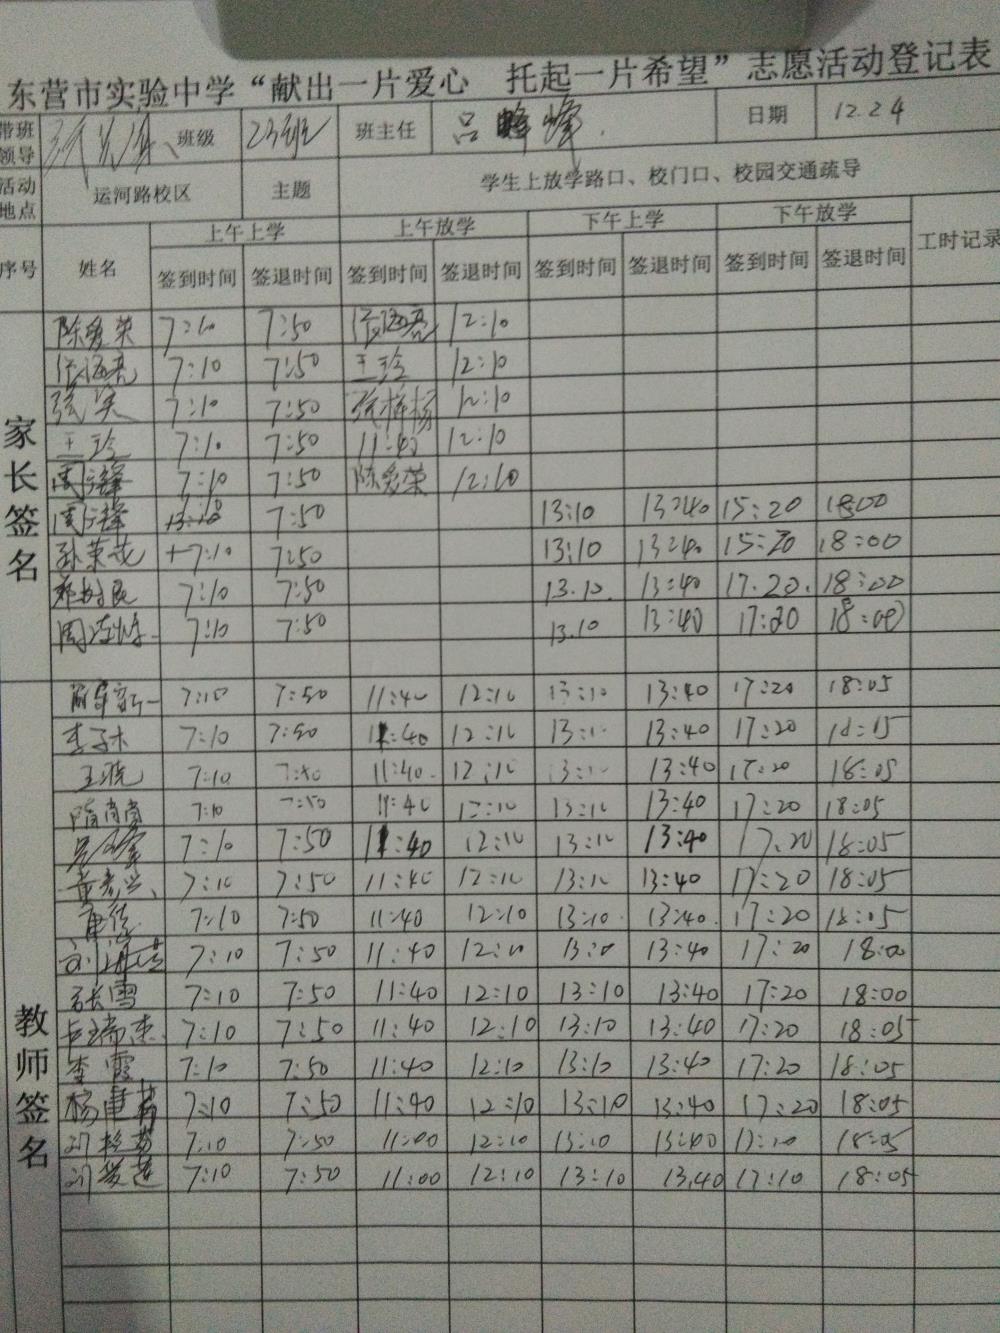 东营市实验中学“献出一片爱心 托起一片希望”志愿活动登记表
带班领导 班级 23班 班主任 吕 峰 日期 12.24
活动地点 运河路校区 主题 学生上放学路口、校门口、校园交通疏导
序号 姓名 上午上学 上午放学 下午上学 下午放学 工时记录
签到时间 签退时间 签到时间 签退时间 签到时间 签退时间 签到时间 签退时间
家长签名
陈爱荣 7:10 7:50 12:10
7:10 7:50 王玲 12:10
7:10 7:50 12:10
王玲 7:10 7:50 11:40 12:10
7:10 7:50 陈爱荣 12:10
7:50 13:10 13:40 15:20 18:00
7:10 7:50 13:10 13:40 15:20 18:00
7:10 7:50 13.10. 13:40 17.20. 18:00
7:10 7:50 13.10 13:40 17:20 18:00
教师签名
7:10 7:50 11:40 12:10 13:10 13:40 17:20 18:05
李子木 7:10 7:50 11:40 12:10 13:10 13:40 17:20
王晓 7:10 7:50 11:40. 12:10 13:10 13:40 17:20 18:05
隋肖肖 7:10 7:50 11:40 12:10 13:10 13:40 17:20 18:05
7:10 7:50 11:40 12:10 13:10 13:40 17:20 18:05
7:10 7:50 11:40 12:10 13:10 13:40 17:20 18:05
7:10 7:50 11:40 12:10 13:10. 13:40. 17:20 18:05
7:10 7:50 11:40 12:10 13:10 13:40 17:20 18:00
张雪 7:10 7:50 11:40 12:10 13:10 13:40 17:20 18:00
7:10 7:50 11:40 12:10 13:10 13:40 17:20 18:05
李霞 7:10 7:50 11:40 12:10 13:10 13:40 17:20 18:05
7:10 7:50 11:40 12:10 13:10 13:40 17:20 18:05
7:10 7:50 11:00 12:10 13:10 13:40 17:10 18:05
7:10 7:50 11:00 12:10 13:10 13.40 17:10 18:05